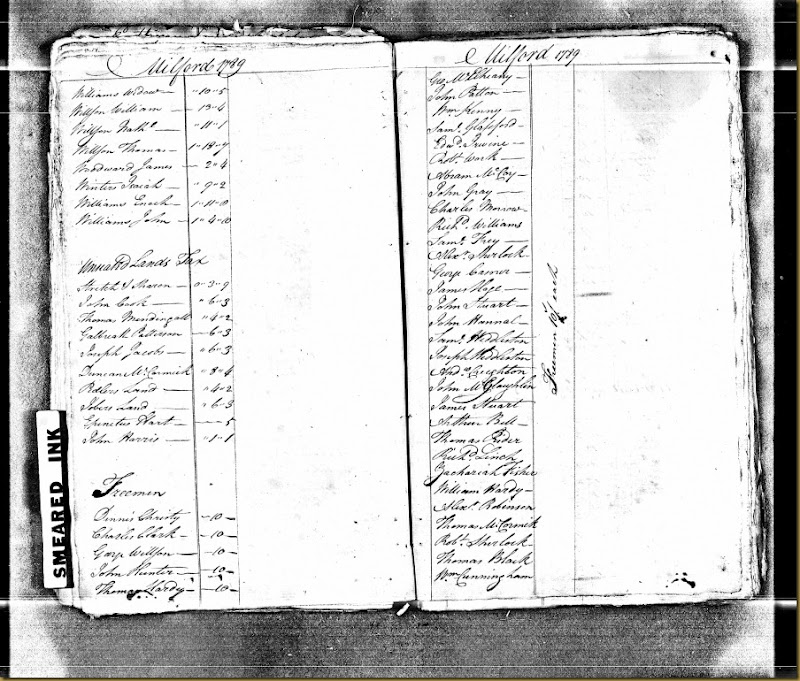 Milford 1789
Williams Widow — " 10 - 5
Willson William — " 13 - 4
Willson Nathl — " 11 - 1
Willson Thomas — 1 " 18 - 7
Woodward James — " 2 " 4
Winters Isaiah — " 9 " 2
Williams Enoch — 1 - 11 - 8
Williams John — 1 " 4 - 10
Unseated Lands Tax
Stretch & Sharon 0 - 3 - 9
John Cook — " 6 - 3
Thomas Mendingall " 4 - 2
Galbreath Patterson — 6 - 3
Joseph Jacobs — " 6 - 3
Duncan McCormick " 8 - 4
Land — " 4 - 2
Land — " 6 - 3
Epenetus Hart — 5
John Harris — " 1 - 1
Freemen
Dennis Christy — 10 —
Charles Clark — 10 —
George Willson — 10 —
John Hunter — 10 —
Thomas Hardy — 10 —
SMEARED INK
Milford 1789
Geo.
John Patton —
Wm Kenny —
Saml. Glassford —
Edwd. Irwine —
Robt. Work —
Abram McCoy —
John Gray —
Charles Morrow —
Richd. Williams
Saml. Frey —
Alexr. Sherlock
George Casner —
James Hoge —
John Stuart —
John Hannal —
Saml. Hiddleston
Joseph Hiddleston
Andw. Creighton
John McGlaughlin
James Stuart
Arthur Bell —
Thomas Rider
Richd. Linch
Zachariah Fisher
William Hardy —
Alexr. Robinson
Thomas McCormick
Robt. Sherlock
Thomas Black
Wm Cunningham
Freemen 10/ each